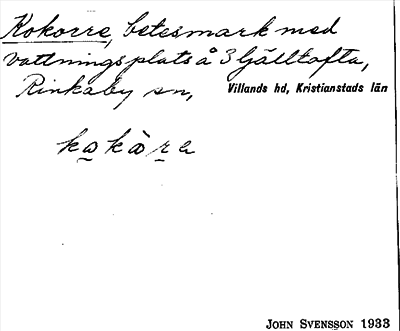 Kokorre, betesmark med
vattningsplats å 3 Gälltofta,
Rinkaby sn, Villands hd, Kristianstads län
kokòra
JOHN SVENSSON 1933